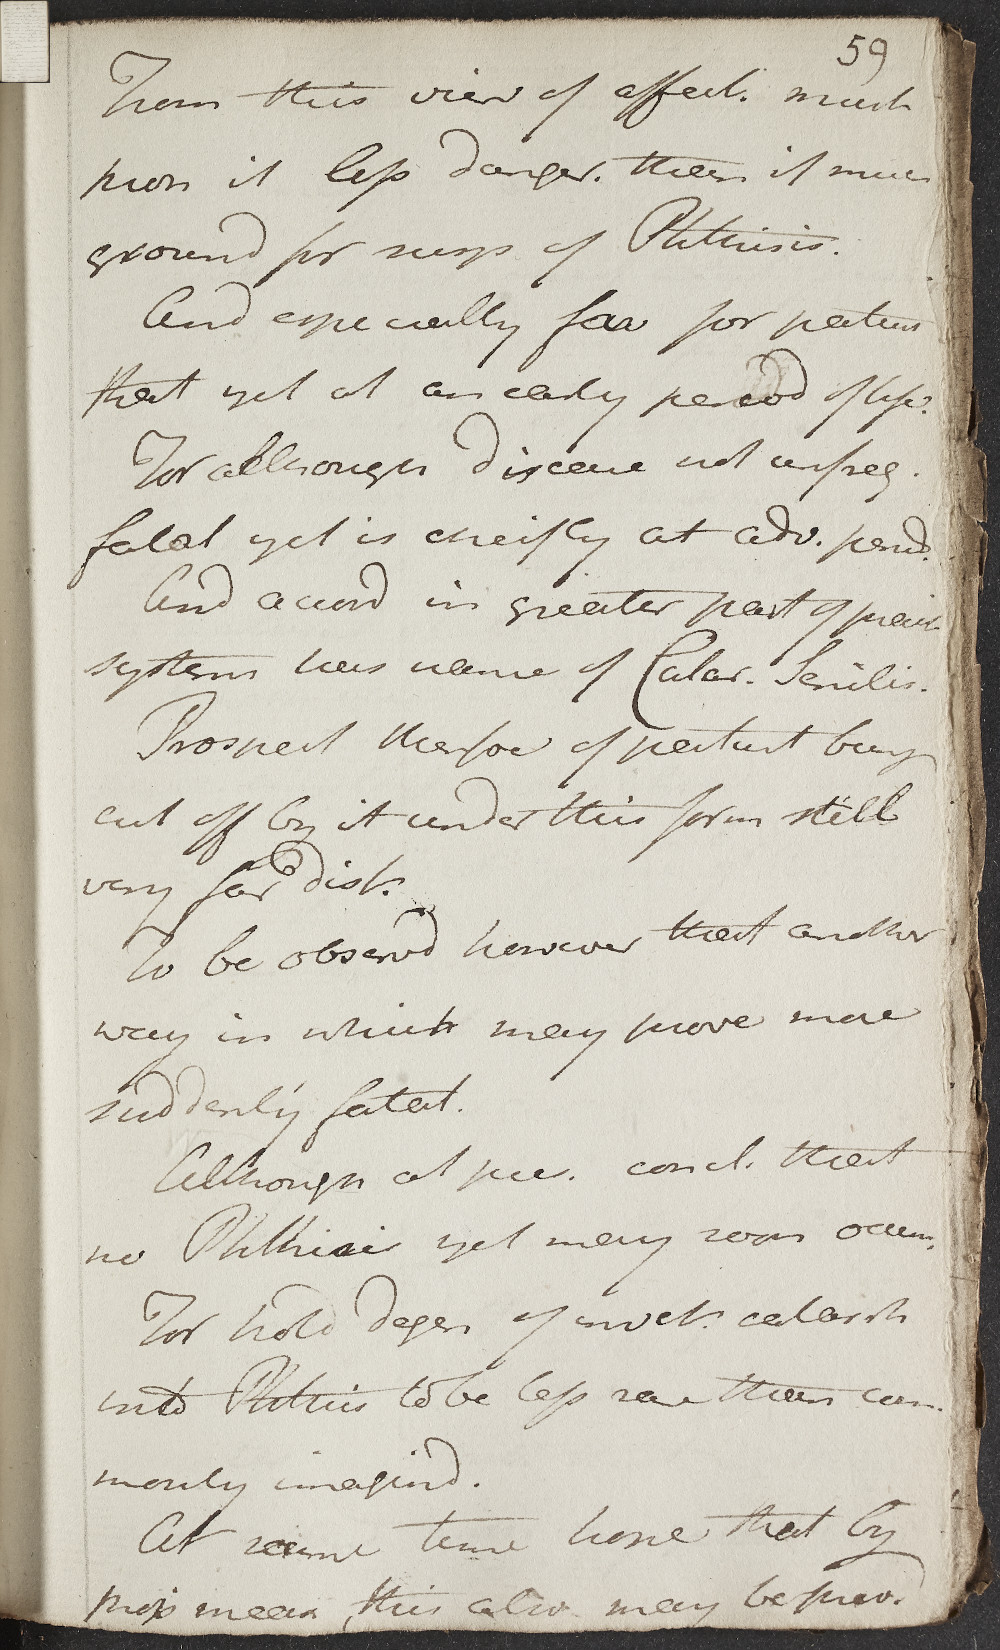 59
From this view of affect. much
pron it less danger. than if mere
ground for susp of Phthisis.
And especially fav for patient
that yet at an early period of life.
For although disease not unfreq.
fatal yet is cheifly at adv. perid.
And accord in greater part of
systems has name of Catar. Senilis.
Prospect therfoe of patient being
cut off by it under this form still
very far dist.
To be observd however that another
way in which may prove more
suddenly fatal.
Although at pre. concl. that
no Phthisis yet may soon occur.
For hold degen of invet. catarrh
into Phthisis to be less rare than com
monly imagind.
At same time hope that by
prop mean this also may be prev.